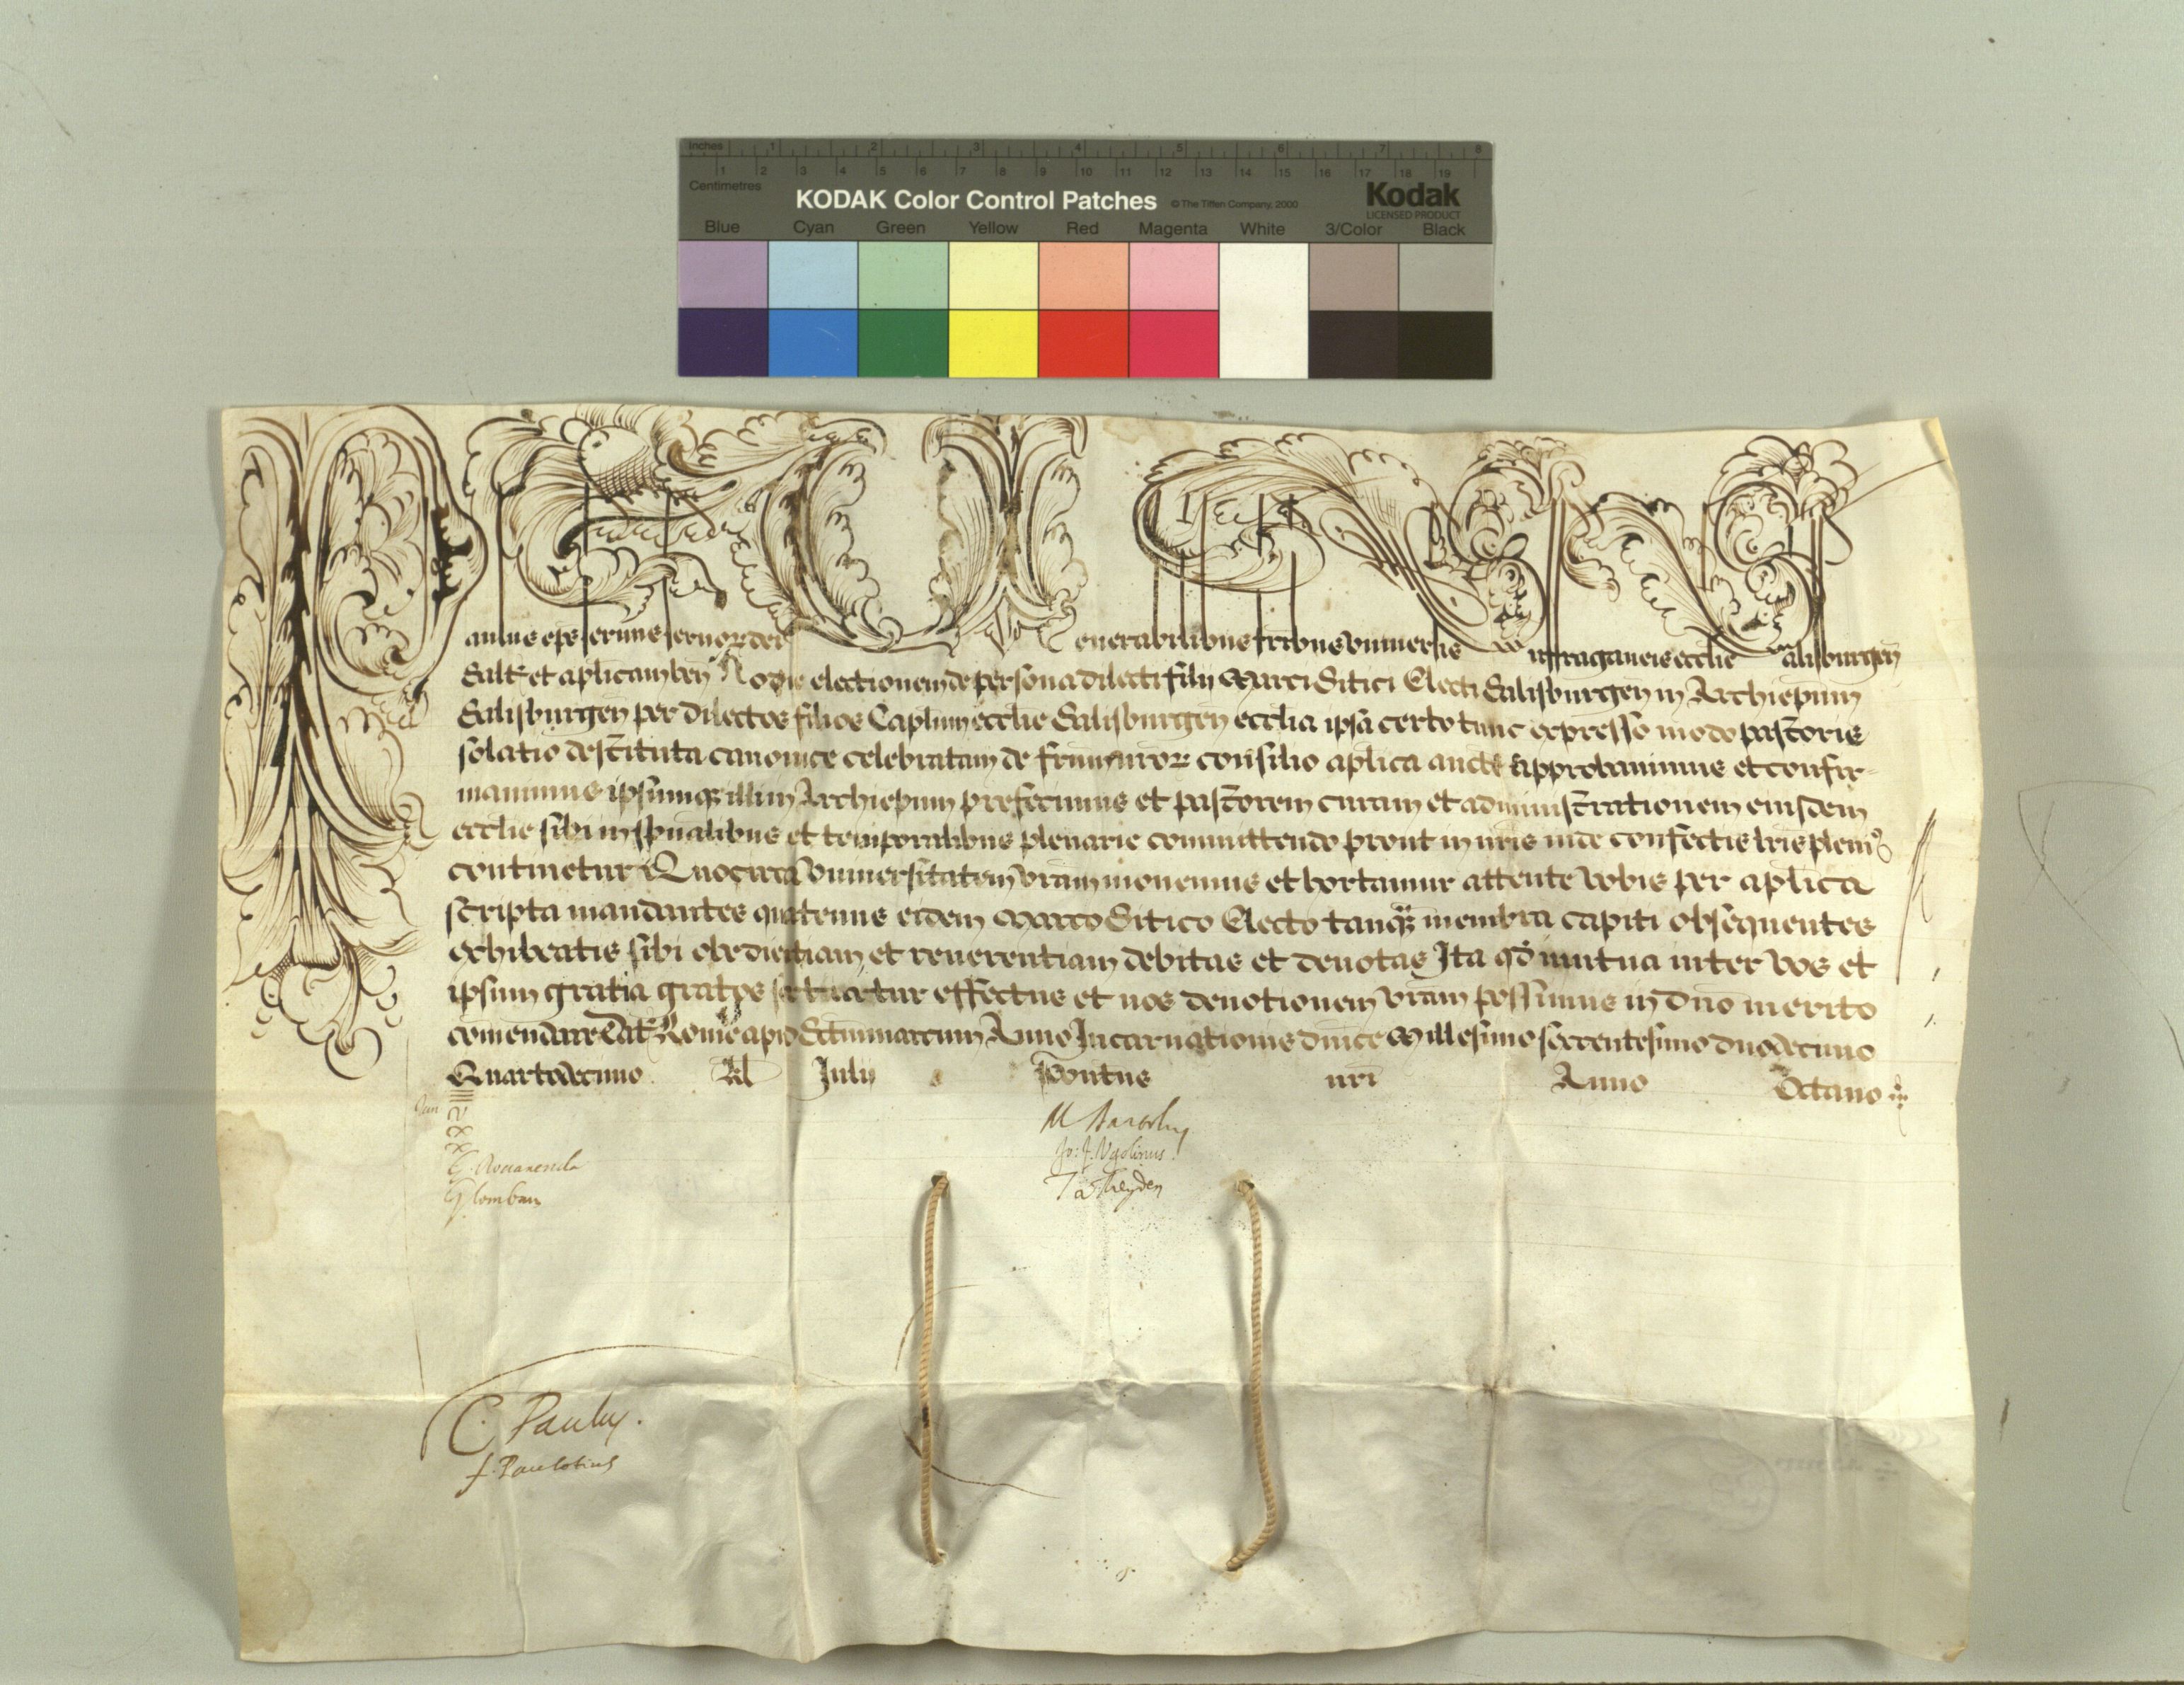 Inches 1 2 3 4 5 6 7 8
Centimetres 1 2 3 4 5 6 7 8 9 10 11 12 13 14 15 16 17 18 19
KODAK Color Control Patches © The Tiffen Company, 2000 Kodak
LICENSED PRODUCT
Blue Cyan Green Yellow Red Magenta White 3/Color Black
Paulus eps seruus seruor dei Venerabilibus fribus vniuersis Suffraganeis ecclie Salisburgen
Saltem et aplicam ben Hodie electionem de persona dilecti filii Marci Sitici Electi Salisburgen in Archiepum
Salisburgen per dilectos filios Caplum ecclie Salisburgen ecclia ipsa certo tunc expresso modo pastoris
solatio destituta canonice celebratam de frum nror consilio aplica aucte approbauimus et confir=
mauimus ipsumq illum Archiepum prefecimus et pastorem curam et administrationem eiusdem
ecclie sibi in spualibus et temporalibus plenarie committendo prout in nris inde confectis lris pleni9
continetur Quocirca vniuersitatem vram monemus et hortamur attente vobis per aplica
scripta mandantes quatenus eidem Marco Sitico Electo tanq membra capiti obsequentes
exhibeatis sibi obedientiam et reuerentiam debitas et deuotas Ita qd mutua inter vos et
ipsum gratia gratos sortiatur effectus et nos deuotionem vram possimus in dno merito
comendare Dat Rome apud Sctummarcum Anno Incarnationis dnice Millesimo sexcentesimo duodecimo
Quartodecimo Kl Julii Pontus nri Anno Octauo
Jun
M Barolus
Jo: J. Vgolinus
G. Rouarenda
G. lomban
C. Paulus.
f. Paulotius